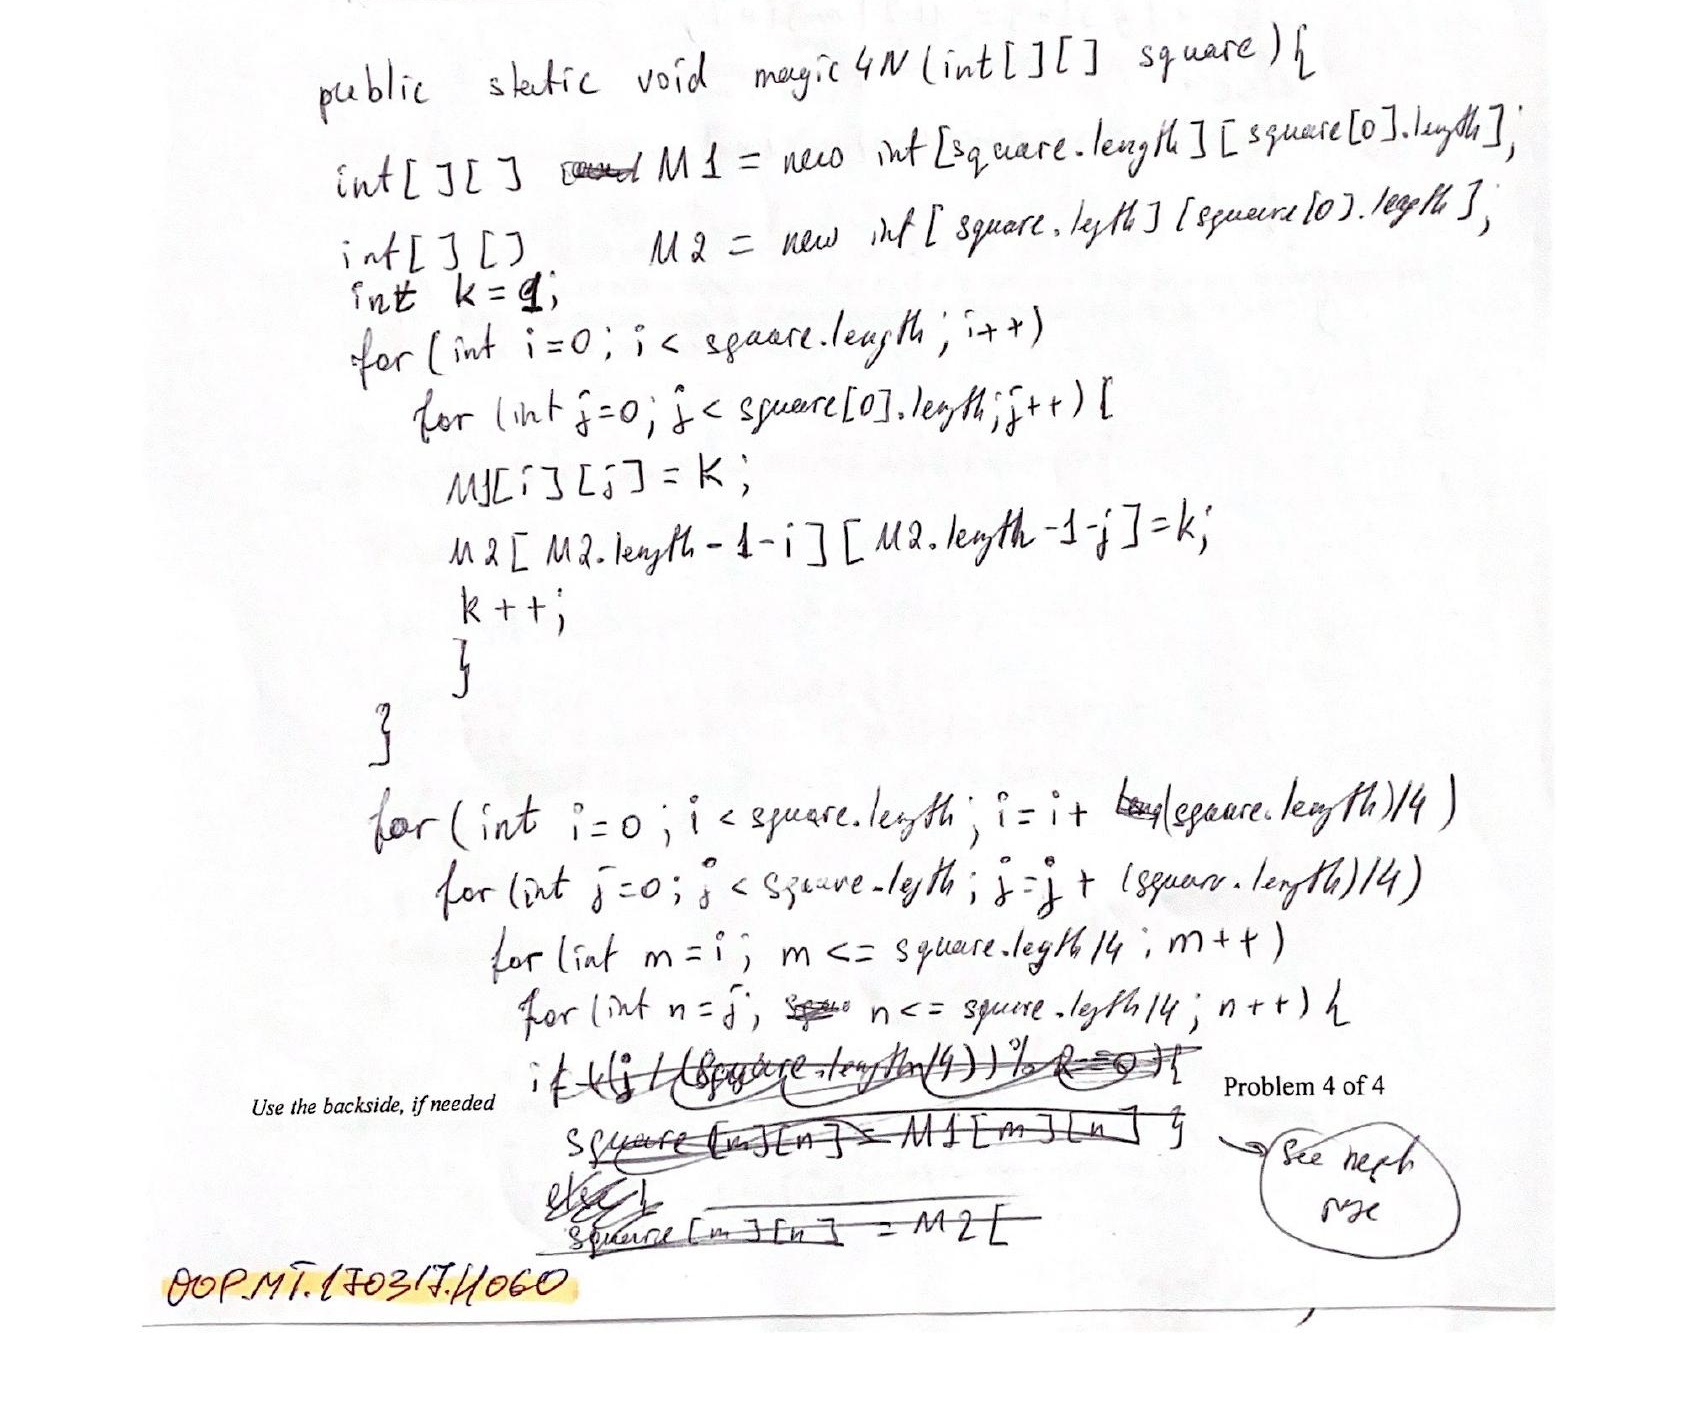 public static void magic4N(int[][] square){
int[][] M1 = new int[square.length][square[0].length];
int[][] M2 = new int[square.legth][square[0].length];
int k=1;
for (int i=0; i< square.length; i++)
for (int j=0; j< square[0].length; j++){
M1[i][j]=k;
M2[M2.length-1-i][M2.length-1-j]=k;
k++;
}
}
for (int i=0; i<square.length; i=i+ (square.length)/4)
for (int j=0; j<square.legth; j=j+ (square.length)/4)
for (int m=i; m<= square.legth/4; m++)
for (int n=j; n<= square.legth/4; n++){
if ((j/(square.length/4))%2==0){
Use the backside, if needed
Problem 4 of 4
square[m][n]=M1[m][n] }
See next page
else {
square[m][n] = M2[
OOP.MT.170317.H060